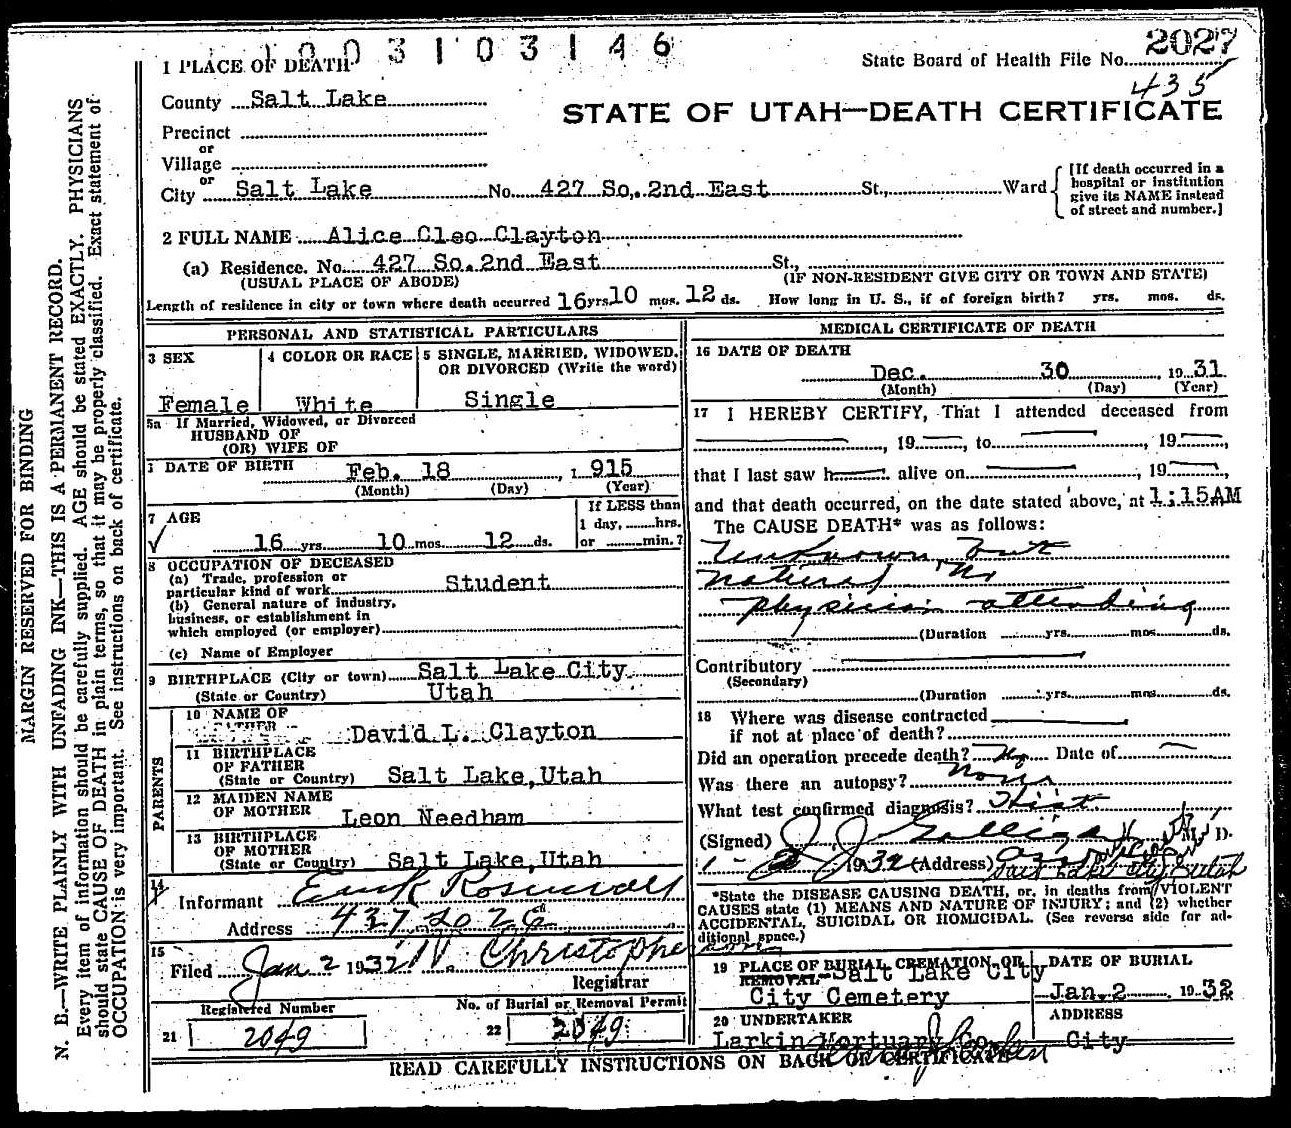 1003103146
1 PLACE OF DEATH
State Board of Health File No. 2027
435
County Salt Lake
STATE OF UTAH—DEATH CERTIFICATE
Precinct
or
Village
or
City Salt Lake No. 427 So. 2nd East St., Ward
[If death occurred in a
hospital or institution
give its NAME instead
of street and number.]
2 FULL NAME Alice Cleo Clayton
(a) Residence. No. 427 So. 2nd East St.,
(USUAL PLACE OF ABODE) (IF NON-RESIDENT GIVE CITY OR TOWN AND STATE)
Length of residence in city or town where death occurred 16 yrs. 10 mos. 12 ds. How long in U. S., if of foreign birth? yrs. mos. ds.
PERSONAL AND STATISTICAL PARTICULARS
3 SEX
Female
4 COLOR OR RACE
White
5 SINGLE, MARRIED, WIDOWED,
OR DIVORCED (Write the word)
Single
5a If Married, Widowed, or Divorced
HUSBAND OF
(OR) WIFE OF
DATE OF BIRTH Feb. 18, 1915
(Month) (Day) (Year)
7 AGE
16 yrs. 10 mos. 12 ds.
If LESS than
1 day, hrs.
or min.?
8 OCCUPATION OF DECEASED
(a) Trade, profession or
particular kind of work Student
(b) General nature of industry,
business, or establishment in
which employed (or employer)
(c) Name of Employer
9 BIRTHPLACE (City or town) Salt Lake City
(State or Country) Utah
PARENTS
10 NAME OF
FATHER David L. Clayton
11 BIRTHPLACE
OF FATHER
(State or Country) Salt Lake, Utah
12 MAIDEN NAME
OF MOTHER Leon Needham
13 BIRTHPLACE
OF MOTHER
(State or Country) Salt Lake, Utah
14
Informant
Address 437 So 2 E
15
Filed Jan 2 1932
Registrar
Registered Number
21 2049
No. of Burial or Removal Permit
22 2049
MEDICAL CERTIFICATE OF DEATH
16 DATE OF DEATH
Dec. 30 1931
(Month) (Day) (Year)
17 I HEREBY CERTIFY, That I attended deceased from
, 19 , to , 19 ,
that I last saw h alive on , 19 ,
and that death occurred, on the date stated above, at 1:15AM
The CAUSE DEATH* was as follows:
Unknown but
Natural No
physician attending
(Duration yrs. mos. ds.
Contributory
(Secondary)
(Duration yrs. mos. ds.
18 Where was disease contracted
if not at place of death?
Did an operation precede death? No Date of
Was there an autopsy? None
What test confirmed diagnosis? Hist
(Signed) J. J. Galligan M. D.
1932 (Address)
Salt Lake City Utah
*State the DISEASE CAUSING DEATH, or, in deaths from VIOLENT
CAUSES state (1) MEANS AND NATURE OF INJURY; and (2) whether
ACCIDENTAL, SUICIDAL OR HOMICIDAL. (See reverse side for ad-
ditional space.)
19 PLACE OF BURIAL CREMATION, OR
REMOVAL Salt Lake City
City Cemetery
DATE OF BURIAL
Jan. 2 1932
20 UNDERTAKER
Larkin Mortuary Co
ADDRESS
City
READ CAREFULLY INSTRUCTIONS ON BACK OF CERTIFICATE
MARGIN RESERVED FOR BINDING
N. B.—WRITE PLAINLY WITH UNFADING INK—THIS IS A PERMANENT RECORD.
Every item of information should be carefully supplied. AGE should be stated EXACTLY. PHYSICIANS
should state CAUSE OF DEATH in plain terms, so that it may be properly classified. Exact statement of
OCCUPATION is very important. See instructions on back of certificate.